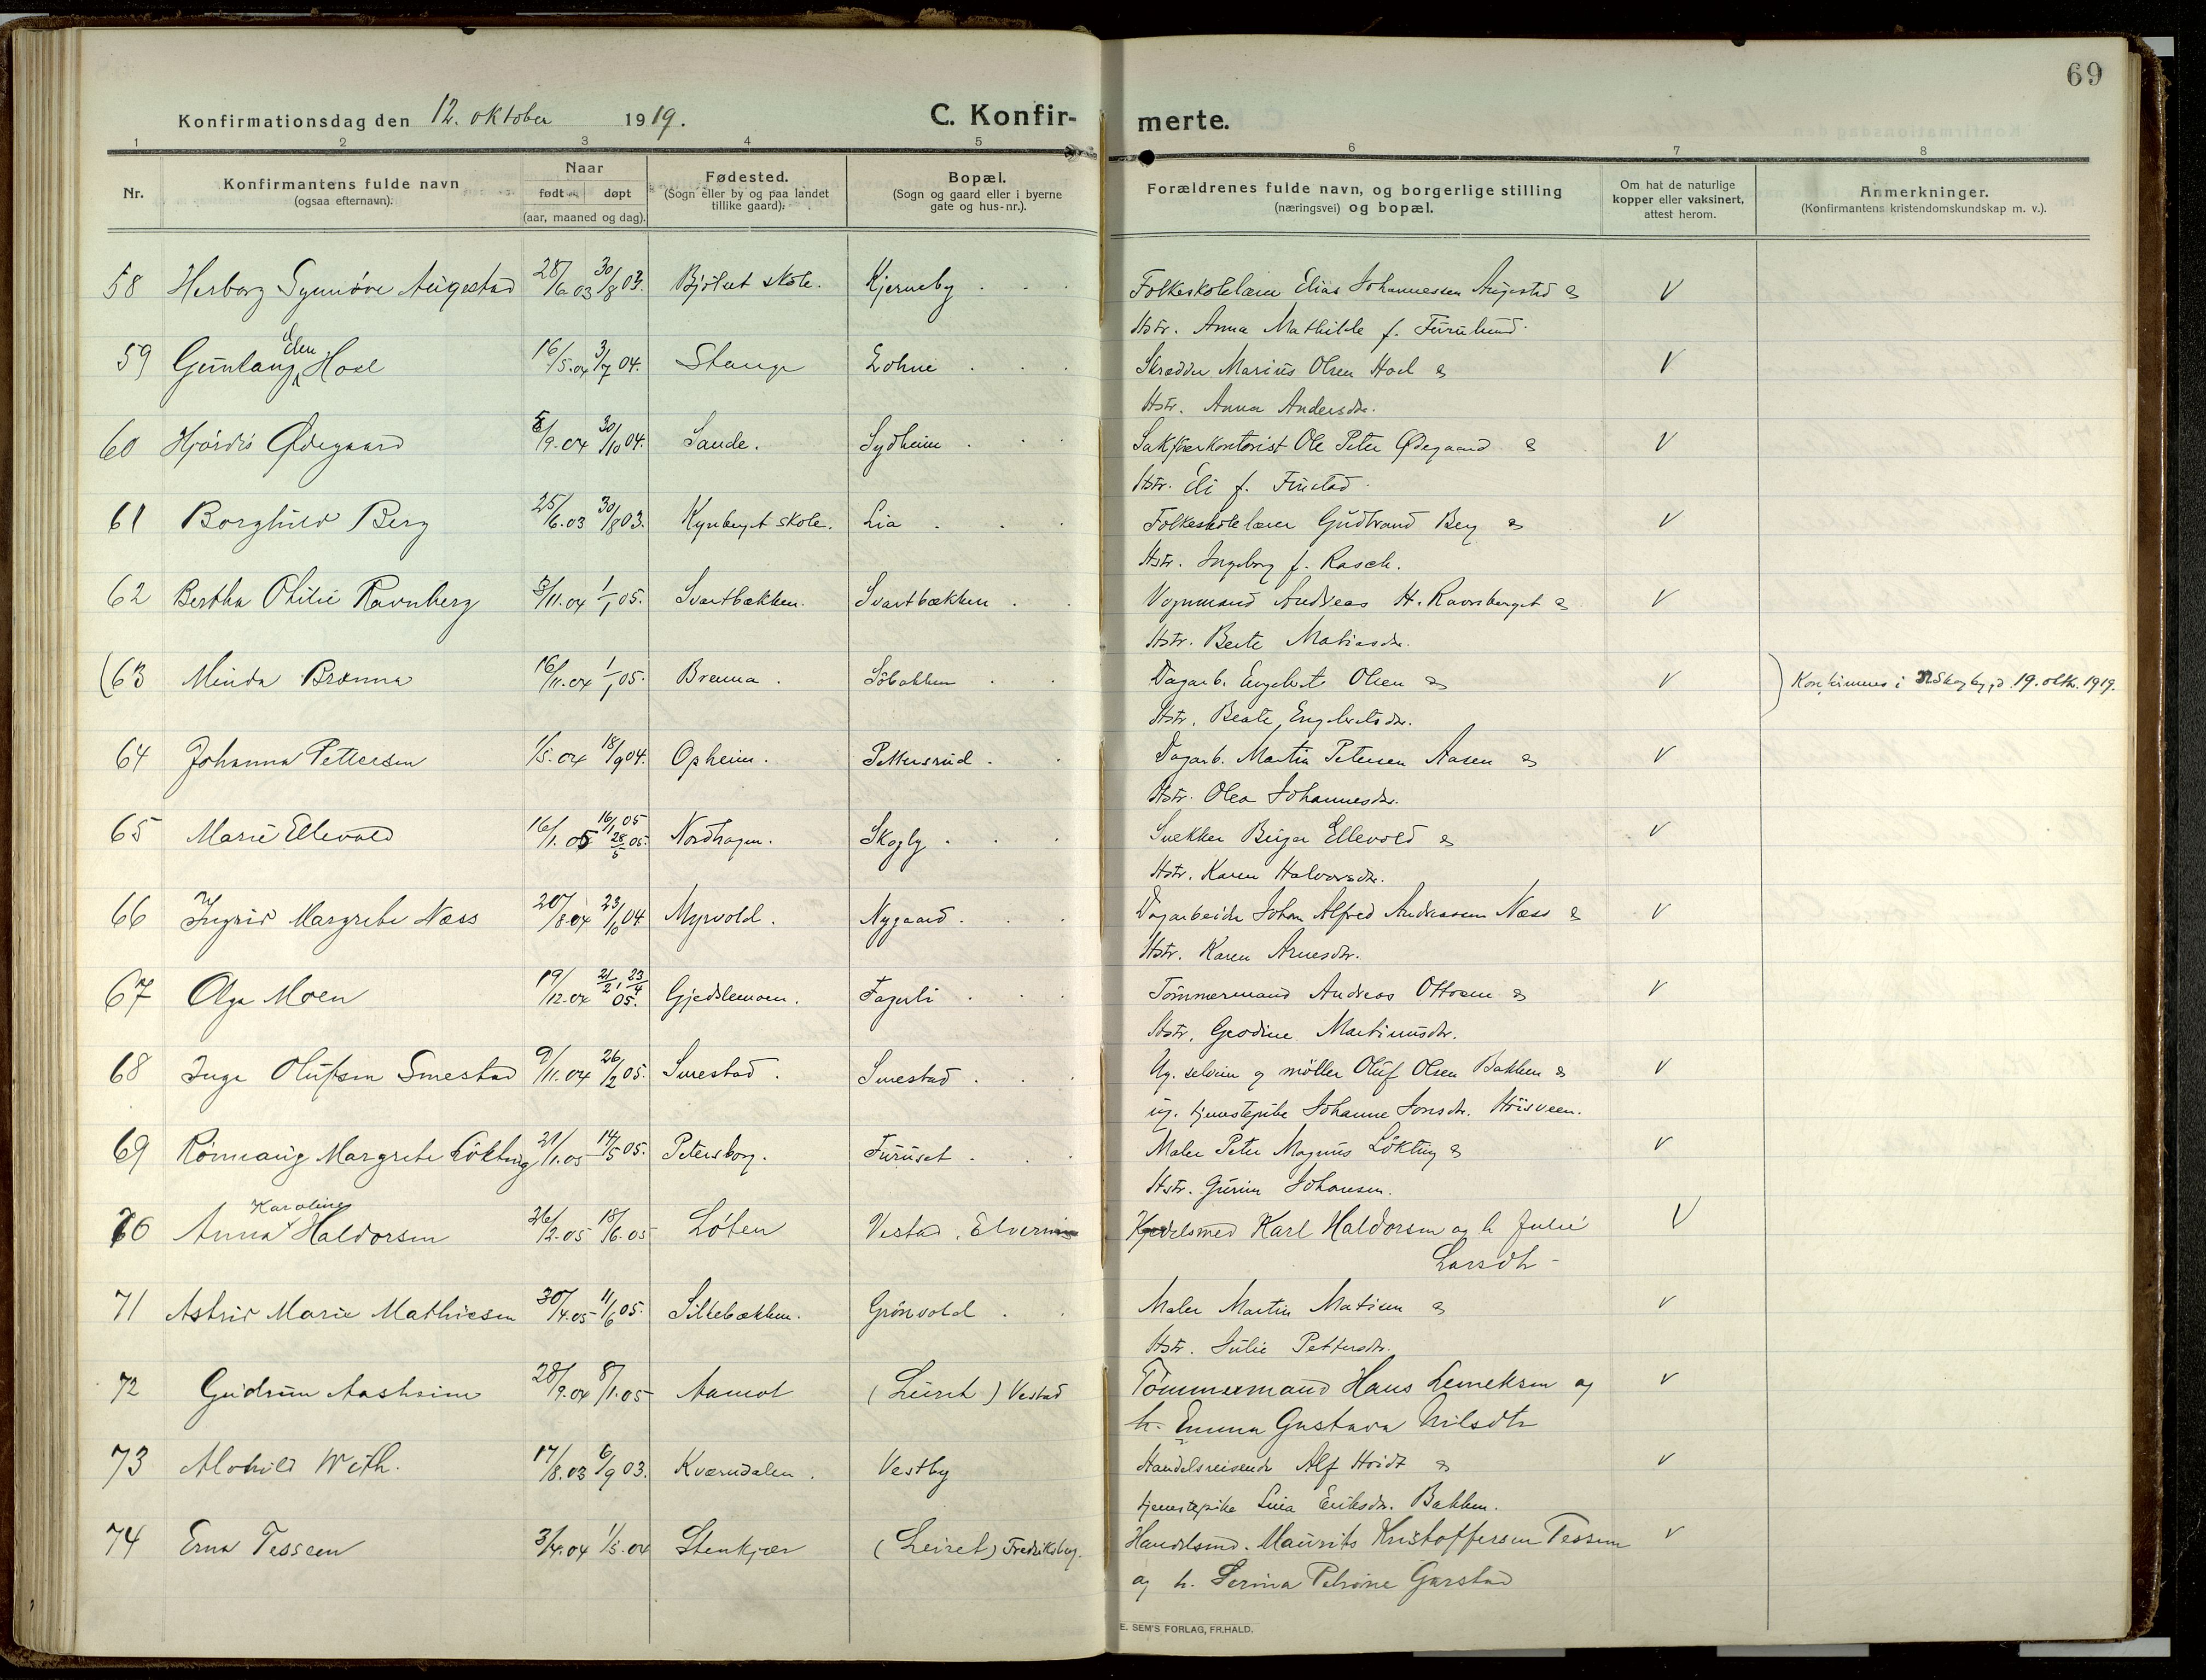 69
Konfirmationsdag den 12. oktober 1919.
C. Konfir-
merte.
1 2 3 4 5 6 7 8
Nr.
Konfirmantens fulde navn
(ogsaa efternavn).
Naar
født døpt
(aar, maaned og dag).
Fødested.
(Sogn eller by og paa landet
tillike gaard).
Bopæl.
(Sogn og gaard eller i byerne
gate og hus-nr.).
Forældrenes fulde navn, og borgerlige stilling
(næringsvei) og bopæl.
Om hat de naturlige
kopper eller vaksinert,
attest herom.
Anmerkninger.
(Konfirmantens kristendomskundskap m. v.).
58 Herborg Synnöve Augestad 28/6 03 30/8 03. Bjölset skole. Kjerneby Folkeskolelærer Elias Johannessen Augestad & V
Hstr. Anna Mathilde f. Furulund.
59 Gunlaug Elen Hoel 16/5.04 3/7 04. Stange Lohne Skrædder Marius Olsen Hoel & V
Hstr. Anna Andersdtr.
60 Hjördis Ødegaard 5/9.04 30/10 04. Sande. Sydheim Sakförerkontorist Ole Peter Ødegaard & V
Hstr. Eli f. Finstad.
61 Borghild Berg 25/6.03 30/8 03. Kynberget skole. Lia Folkeskolelærer Gudbrand Berg & V
Hstr. Ingeborg f. Rasch.
62 Bertha Otilie Ravnberg 3/11.04 1/1 05. Svartbækken. Svartbækken Vognmand Andreas H. Ravnsberget & V
Hstr. Berte Matiasdtr.
(63 Minda Brænna 16/11.04 1/1 05. Brenna. Söbakken Dagarb. Engebret Olsen & V ) Konfirmeres i N Skogbygd 19. oktbr. 1919.
Hstr. Beate Engebretsdtr.
64 Johanna Pettersen 1/5.04 18/9 04. Opheim. Pettersrud Dagarb. Martin Petersen Aasen & V
Hstr. Olea Johannesdtr.
65 Marie Ellevold 16/1.05 16/1 05 28/5 05. Nordhagen. Skogly Snekker Birger Ellevold & V
Hstr. Karen Halvorsdtr.
66 Ingrid Margrethe Næss 20/8 04 23/10 04 Myrvold. Nygaard. Dagarbeider Johan Alfred Andreassen Næss & V
Hstr. Karen Arnesdtr.
67 Olga Moen 19/12.04 21/2, 23/4 05. Gjedslemoen. Fagerli Tömmermand Andreas Ottosen & V
Hstr. Geodine Martinusdtr.
68 Inga Olufsen Smestad 9/11.04 26/2 05. Smestad. Smestad Ug. selveier og möller Oluf Olsen Bakken & V
ug. tjenestepike Johanne Jonsdtr. Höisveen.
69 Rönnaug Margrethe Lökting 21/1.05 14/5 05. Petersborg. Furuset Maler Peter Magnus Lökting & V
Hstr. Gurine Johansen.
70 Anna Karoline Haldorsen 26/2.05 18/6.05 Löten Vestad, Elverum Kjedelsmed Karl Haldorsen og h Julie V
Larsdtr
71 Astrid Marie Mathiesen 30/4.05 11/6 05. Sillebækken. Grönvold Maler Martin Matisen & V
Hstr. Julie Pettersdtr.
72 Gudrun Aasheim 28/9.04 8/1.05 Aamot (Leiret) Vestad Tömmermand Hans Lemeksen og V
h. Emma Gustava Nilsdtr
73 Alvhild With. 17/8.03 6/9 03. Kværndalen. Vestby Handelsreisende Alf Hvidt & V
tjenestepike Lina Eriksdtr. Bakken.
74 Erna Tessem 3/4.04 1/5.04 Stenkjær (Leiret) Fredriksberg. Handelsmd. Maurits Kristoffersen Tessem V
og h. Serina Petrine Garstad
E. SEM'S FORLAG, FR.HALD.